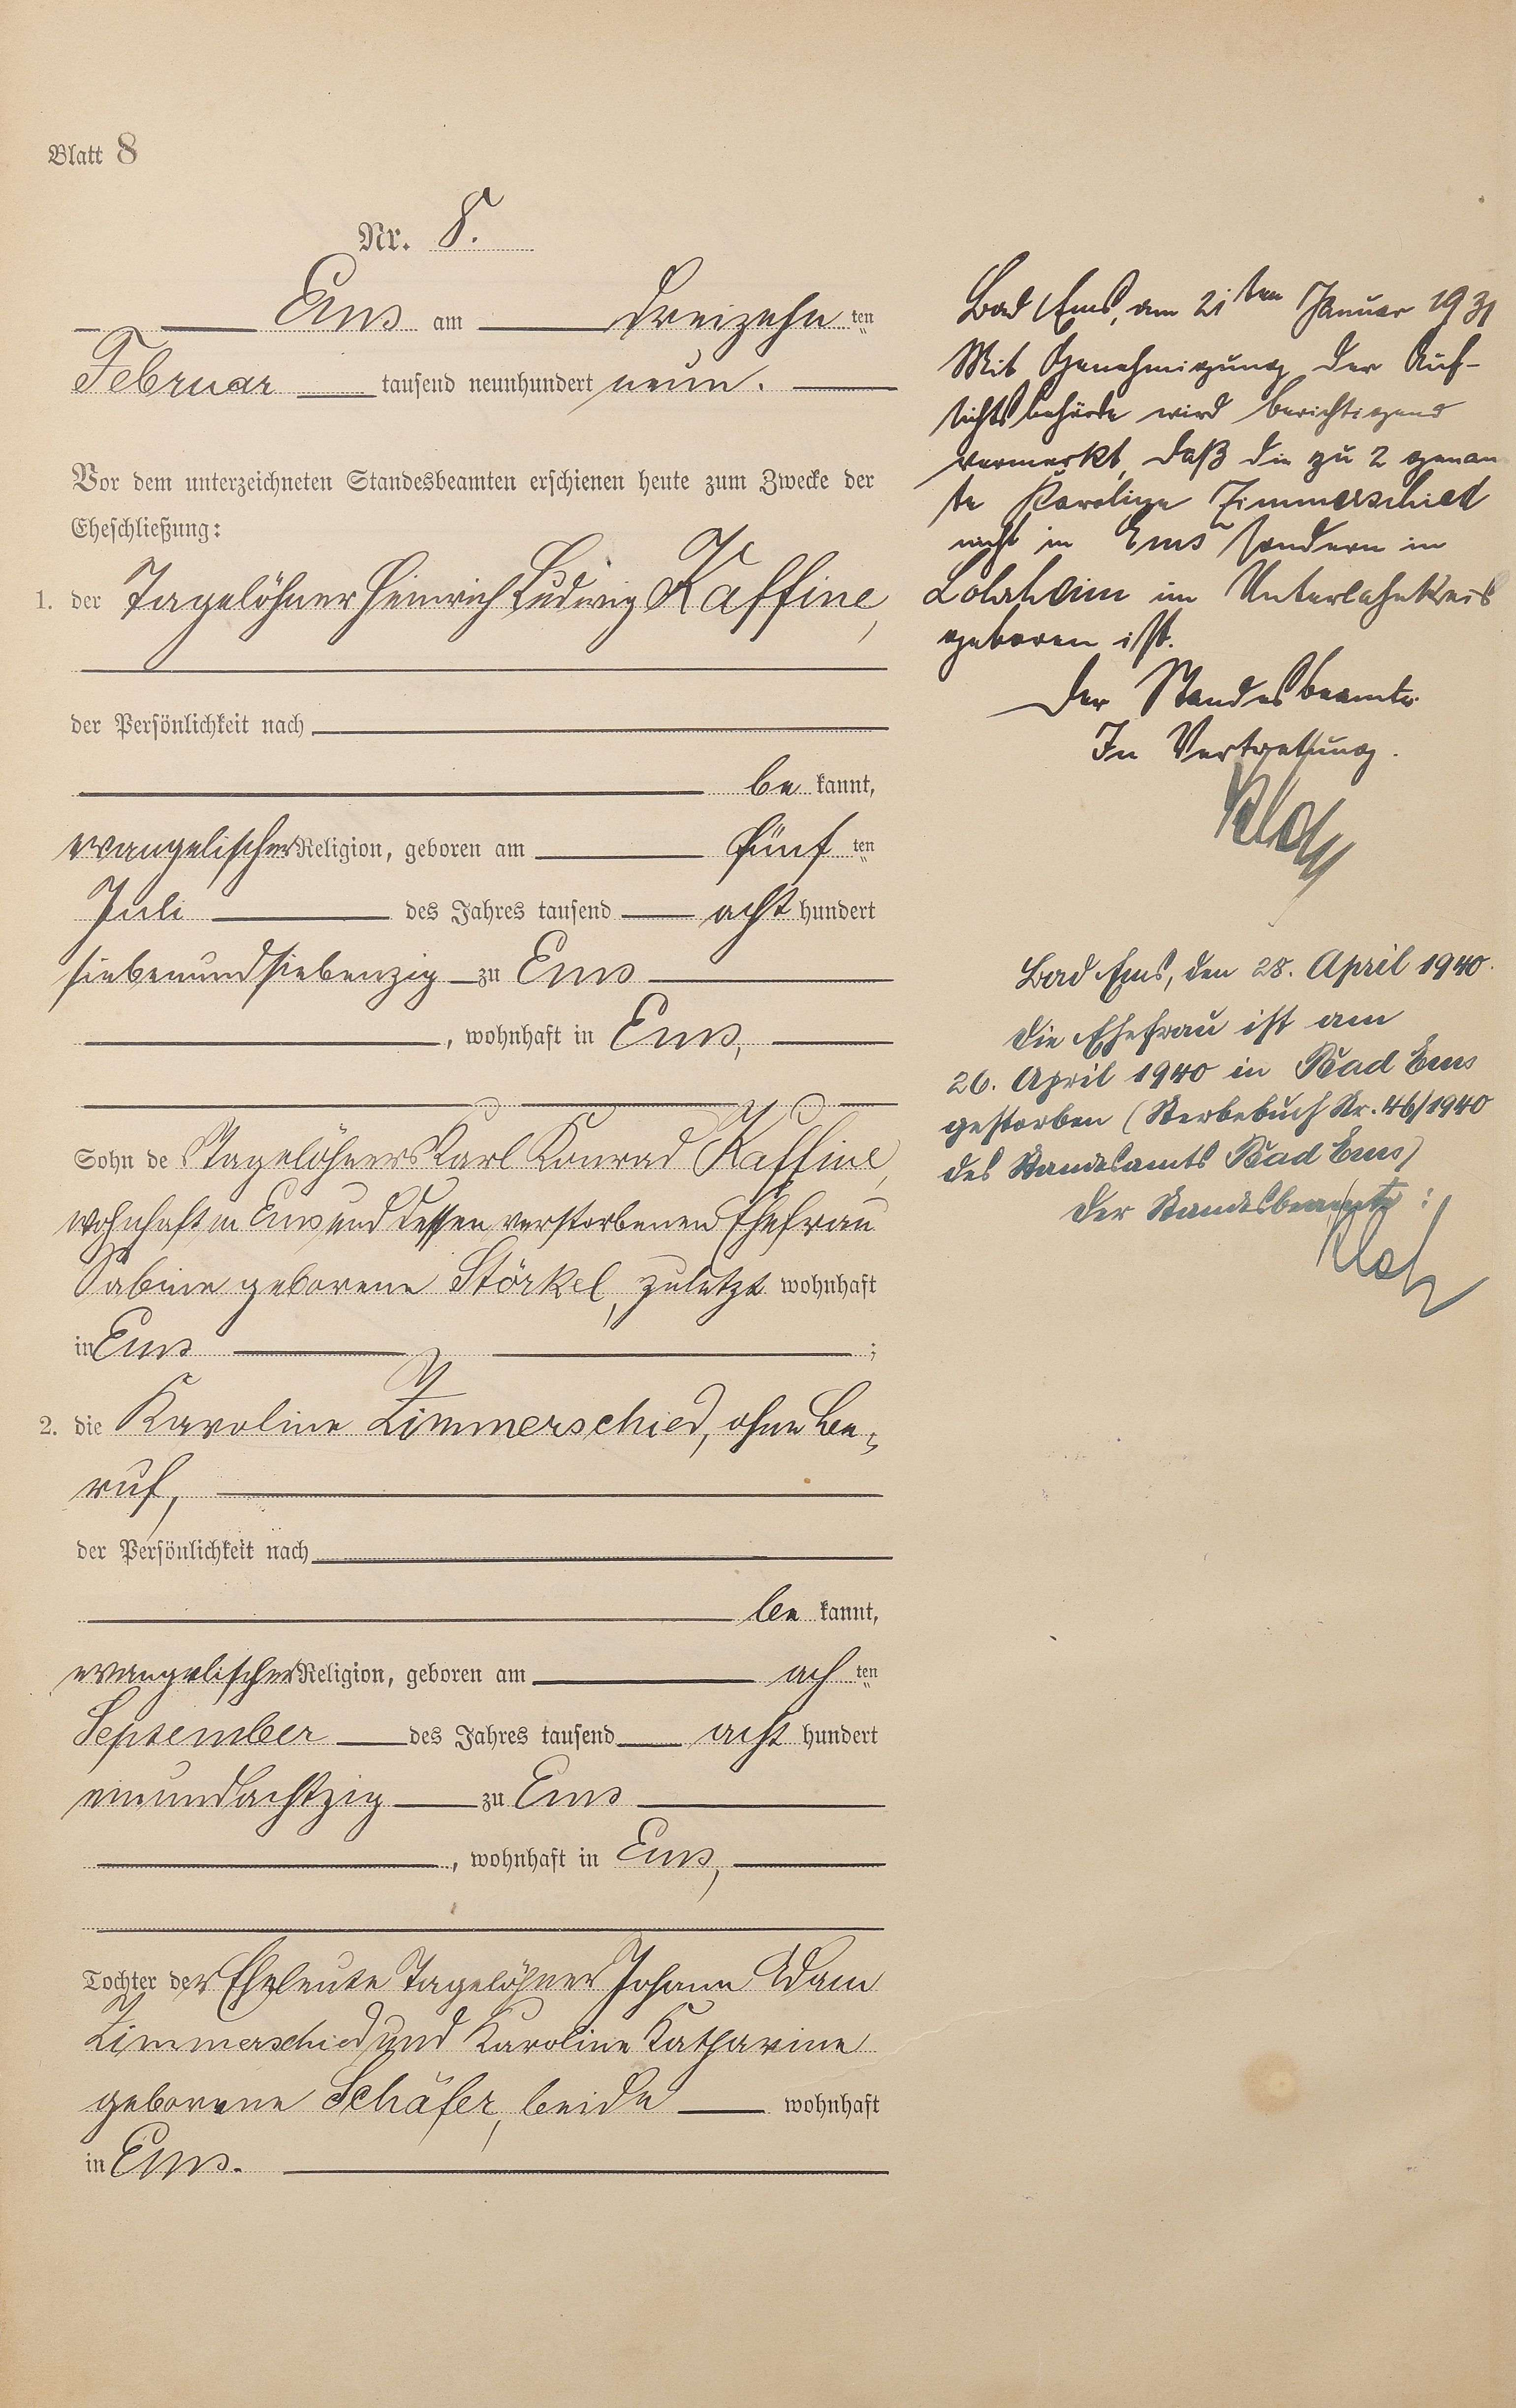 Blatt 8
Nr. 8.
Ems am dreizehn ten
Februar tausend neunhundert neun.
Vor dem unterzeichneten Standesbeamten erschienen heute zum Zwecke der
Eheschließung:
1. der Tagelöhner Heinrich Ludwig Kaffine,
der Persönlichkeit nach
be kannt,
evangelischer Religion, geboren am fünf ten
Juli des Jahres tausend acht hundert
siebenundsiebenzig zu Ems
, wohnhaft in Ems,
Sohn des Tagelöhners Karl Konrad Kaffine,
wohnhaft in Ems und dessen verstorbenen Ehefrau
Sabine geborene Störkel, zuletzt wohnhaft
in Ems ;
2. die Karoline Zimmerschied, ohne Be-
ruf,
der Persönlichkeit nach
be kannt,
evangelischer Religion, geboren am ach ten
September des Jahres tausend acht hundert
einundachtzig zu Ems
, wohnhaft in Ems,
Tochter der Eheleute Tagelöhner Johann Adam
Zimmerschied und Karoline Katharine
geborene Schäfer, beide wohnhaft
in Ems.
Bad Ems, am 21ten Januar 1931
Mit Genehmigung der Auf-
sichtsbehörde wird berichtigend
vermerkt, daß die zu 2 genan
te Karoline Zimmerschied
nicht in Ems sondern in
im Unterlahnkreis
geboren ist.
Der Standesbeamte
In Vertretung.
Bad Ems, den 28. April 1940.
Die Ehefrau ist am
26. April 1940 in Bad Ems
gestorben (Sterbebuch Nr. 46/1940
des Standesamts Bad Ems)
Der Standesbeamte: